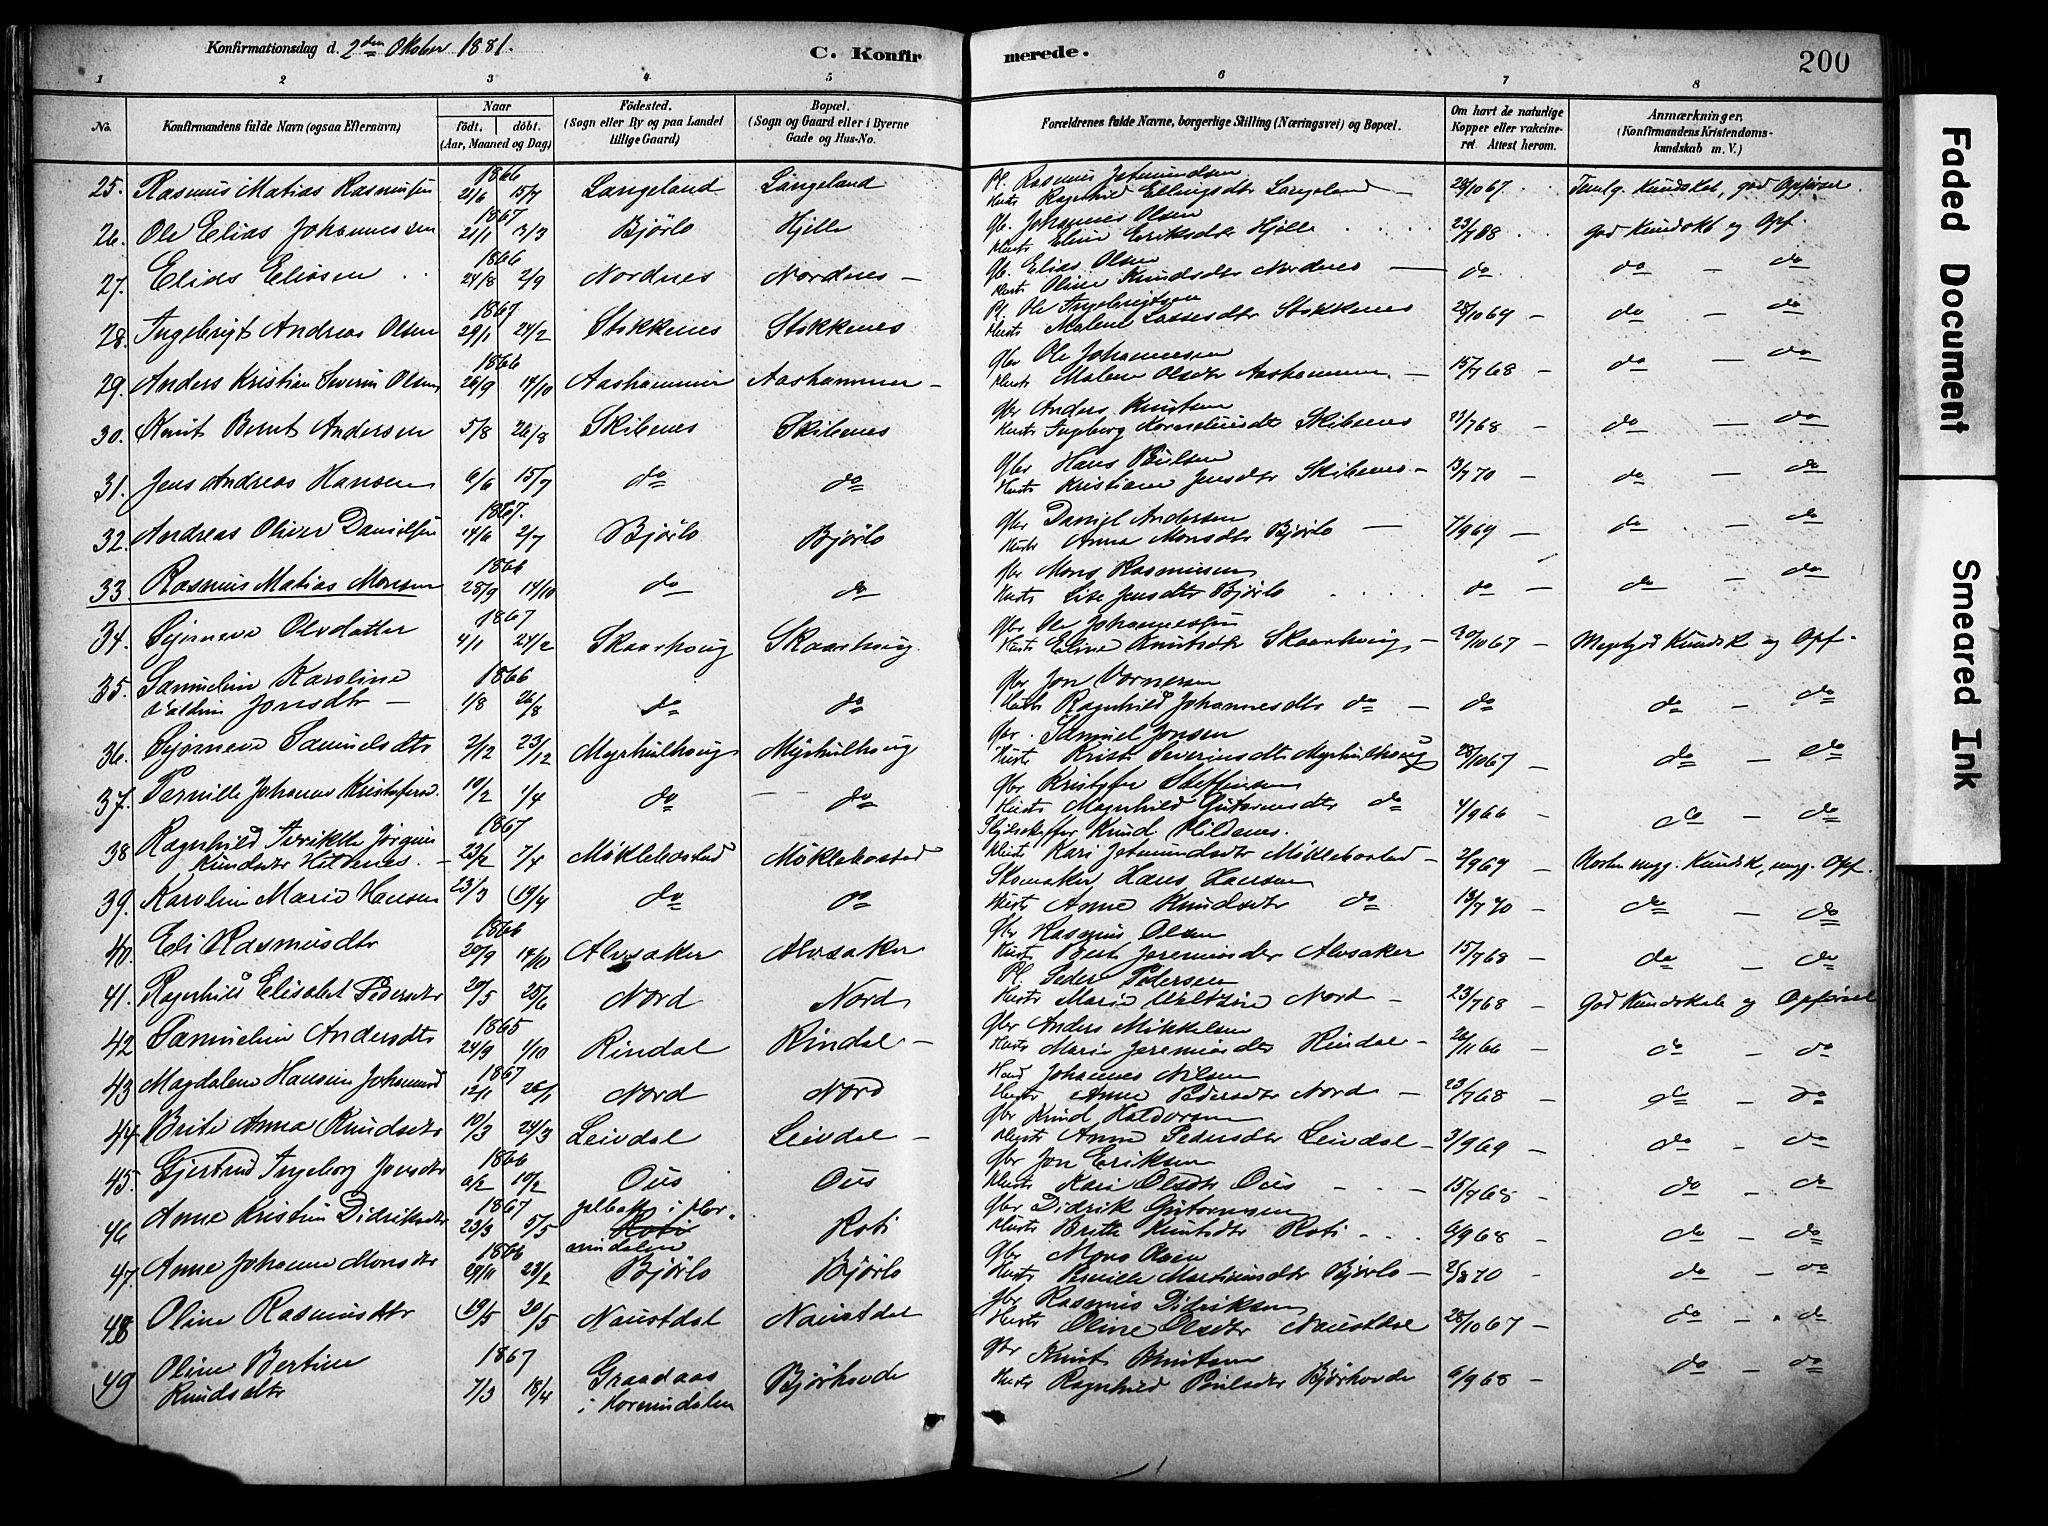 Konfirmationsdag d. 2den Oktober 1881.
C. Konfirmerede.
200
1 2 3 4 5 6 7 8
No. Konfirmandens fulde Navn (ogsaa Efternavn) Naar født. døbt. (Aar, Maaned og Dag) Födested. (Sogn eller By og paa Landet tillige Gaard) Bopæl. (Sogn og Gaard eller i Byerne Gade og Hus-No. Forældrenes fulde Navne, borgerlige Stilling (Næringsvei) og Bopæl. Om havt de naturlige Kopper eller vakcineret. Attest herom. Anmærkninger. (Konfirmandens Kristendomskundskab m. V.)
25. Rasmus Matias Rasmussen 1866 21/6 15/7 Langeland Langeland Pl. Rasmus Jetmundsen Hust. Ragnhild Ellingsdtr Langeland 28/10 67 Temlg. Kundskab, god Opførsel
26. Ole Elias Johannessen 1867 21/1 3/3 Bjørlo Hjelle Gb. Johannes Olsen Hust. Eline Eriksdtr Hjelle 23/7 68 god Kundskb og Opf.
27. Elias Eliasen 1866 24/8 2/9 Nordnes Nordnes Gb. Elias Olsen Hust. Oline Knudsdtr Nordnes do do do
28. Ingebrigt Andreas Olsen 1867 29/1 24/2 Stokkenes Stokkenes Pl. Ole Ingebrigtsen Hust. Malene Lassesdtr Stokkenes 28/10 69 do do
29. Anders Kristian Severin Olsen 1866 26/9 14/10 Aashammer Aashammer Gbr Ole Johannessen Hust. Malene Olsdtr Aashammer 15/7 68 do do
30. Knut Bernt Andersen 5/8 26/8 Skibenes Skibenes Gbr Anders Knutsen Hust. Ingeborg Korneliusdt Skibenes 23/7 68 do do
31. Jens Andreas Hansen 6/6 15/7 do do Gbr Hans Poulsen Hust. Kristiane Jensdtr Skibenes 13/7 70 do do
32. Andreas Oliver Danielsen 1867. 14/6 2/7 Bjørlo Bjørlo Gbr Daniel Andersen Hust. Anna Monsdtr Bjørlo 7/9 69 do do
33 Rasmus Matias Monsen 1866 28/9 14/10 do do Gbr Mons Rasmussen Hust. Lise Jensdtr Bjørlo do do do
34. Sijorneva Olsdatter 1867 4/1 24/2 Skaarhoug Skaarhoug Gbr Ole Johannessen Hust. Eline Knutsdtr Skaarhoug 20/10 67 Megetgod Kundsk og Opf.
35. Samueline Karoline Valdrine Jonsdtr 1866 1/8 26/8 do do Gbr Jon Vornersen Hust. Ragnhild Johannesdtr do do do do
36. Sijorneva Samuelsdtr 2/12 23/12 Myrhulhoug Myrhulhoug Gbr. Samuel Jonsen Hust. Kristi Severinsdt Myrhulhoug 28/10 67 do do
37. Pernille Johanne Kristofersd. 10/2 1/4 do do Gbr Kristoffer Steffensen Hust. Magnhild Gutormsdtr do 4/9 66 do do
38 Ragnhild Fredrikke Jørgine Knudsdtr Hildenes 1867 23/2 7/4 Møklebostad Møklebostad Skydsskaffer Knud Hildenes. Hust. Kari Jetmundsdtr Møklebostad 2/9 69 Næsten megg. Kundsk, megg. Opf.
39. Karoline Marie Hansen 23/3 19/4 do do Skomaker Hans Hansen Hust. Anne Knudsdtr do 13/7 70 do do
40. Eli Rasmusdtr 1866 20/9 14/10 Alvsaker Alvsaker Gbr Rasmus Olsen Hust. Berte Jeremiasdtr Alvsaker 15/7 68 do do
41. Ragnhild Elisabet Pedersdtr 20/5 25/6 Nord Nord Pl. Peder Pedersen Hust. Marie Nord 23/7 68 God Kundskab og Opførsel
42 Samueline Andersdtr 1865 24/9 1/10 Rindal Rindal Gbr Anders Mikkelsen Hust. Marie Jeremiasdtr Rindal 26/11 66 do do
43 Magdalene Hansine Johannesd 1867 12/1 26/1 Nord Nord Johannes Nilsen Hust. Anne Pedersdtr Nord 23/7 68 do do
44. Brite Anna Knudsdtr 10/3 24/3 Leivdal Leivdal Gbr Knud Haldorsen Hust. Anne Pedersdtr Leivdal 3/9 69 do do
45. Gjertrud Ingeborg Jonsdtr 1866 6/2 10/2 Ous Ous Gbr Jon Eriksen Hust. Kari Olsdtr Ous 15/7 68 do do
46 Anne Kristine Didriksdtr 1867 23/3 5/5 i Hornindalen Roti Roti Gbr Didrik Gutormsen Hust. Britte Knutsdtr Roti 6/9 68 do do
47. Anne Johanne Monsdtr 1866 29/11 23/2 Bjørlo Bjørlo Gbr Mons Olsen Hust. Pernille Martinusdtr Bjørlo 25/8 70 do do
48 Oline Rasmusdtr 19/5 20/5 Naustdal Naustdal Gbr Rasmus Didriksen Hust. Oline Olsdtr Naustdal 28/10 67 do do
49 Oline Bertine Knudsdtr 1867 7/3 18/4 Graadaas i Hornindalen Bjørhovde Gbr Knut Knutsen Hust. Ragnhild Poulsdtr Bjørhovde 6/9 68 do do
Faded Document
Smeared Ink